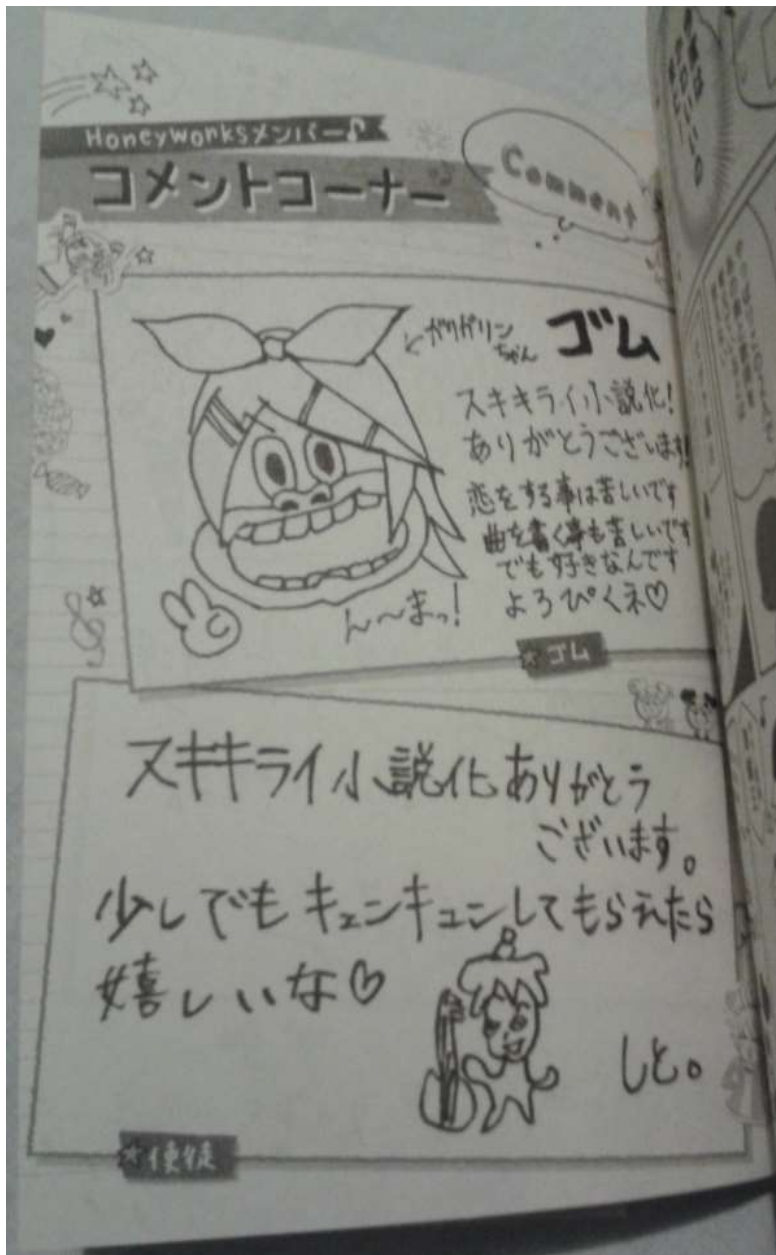 HoneyWorksメンバー♪
コメントコーナー
Comment
←ガリガリン
ちゃん
ゴム
スキキライ小説化!
ありがとうございます!
恋をする事は苦しいです
曲を書く事も苦しいです
でも好きなんです
よろぴくネ♡
ん〜まっ!
☆ゴム
スキキライ小説化ありがとう
ございます。
少しでもキュンキュンしてもらえたら
嬉しいな♡
しと。
☆使徒